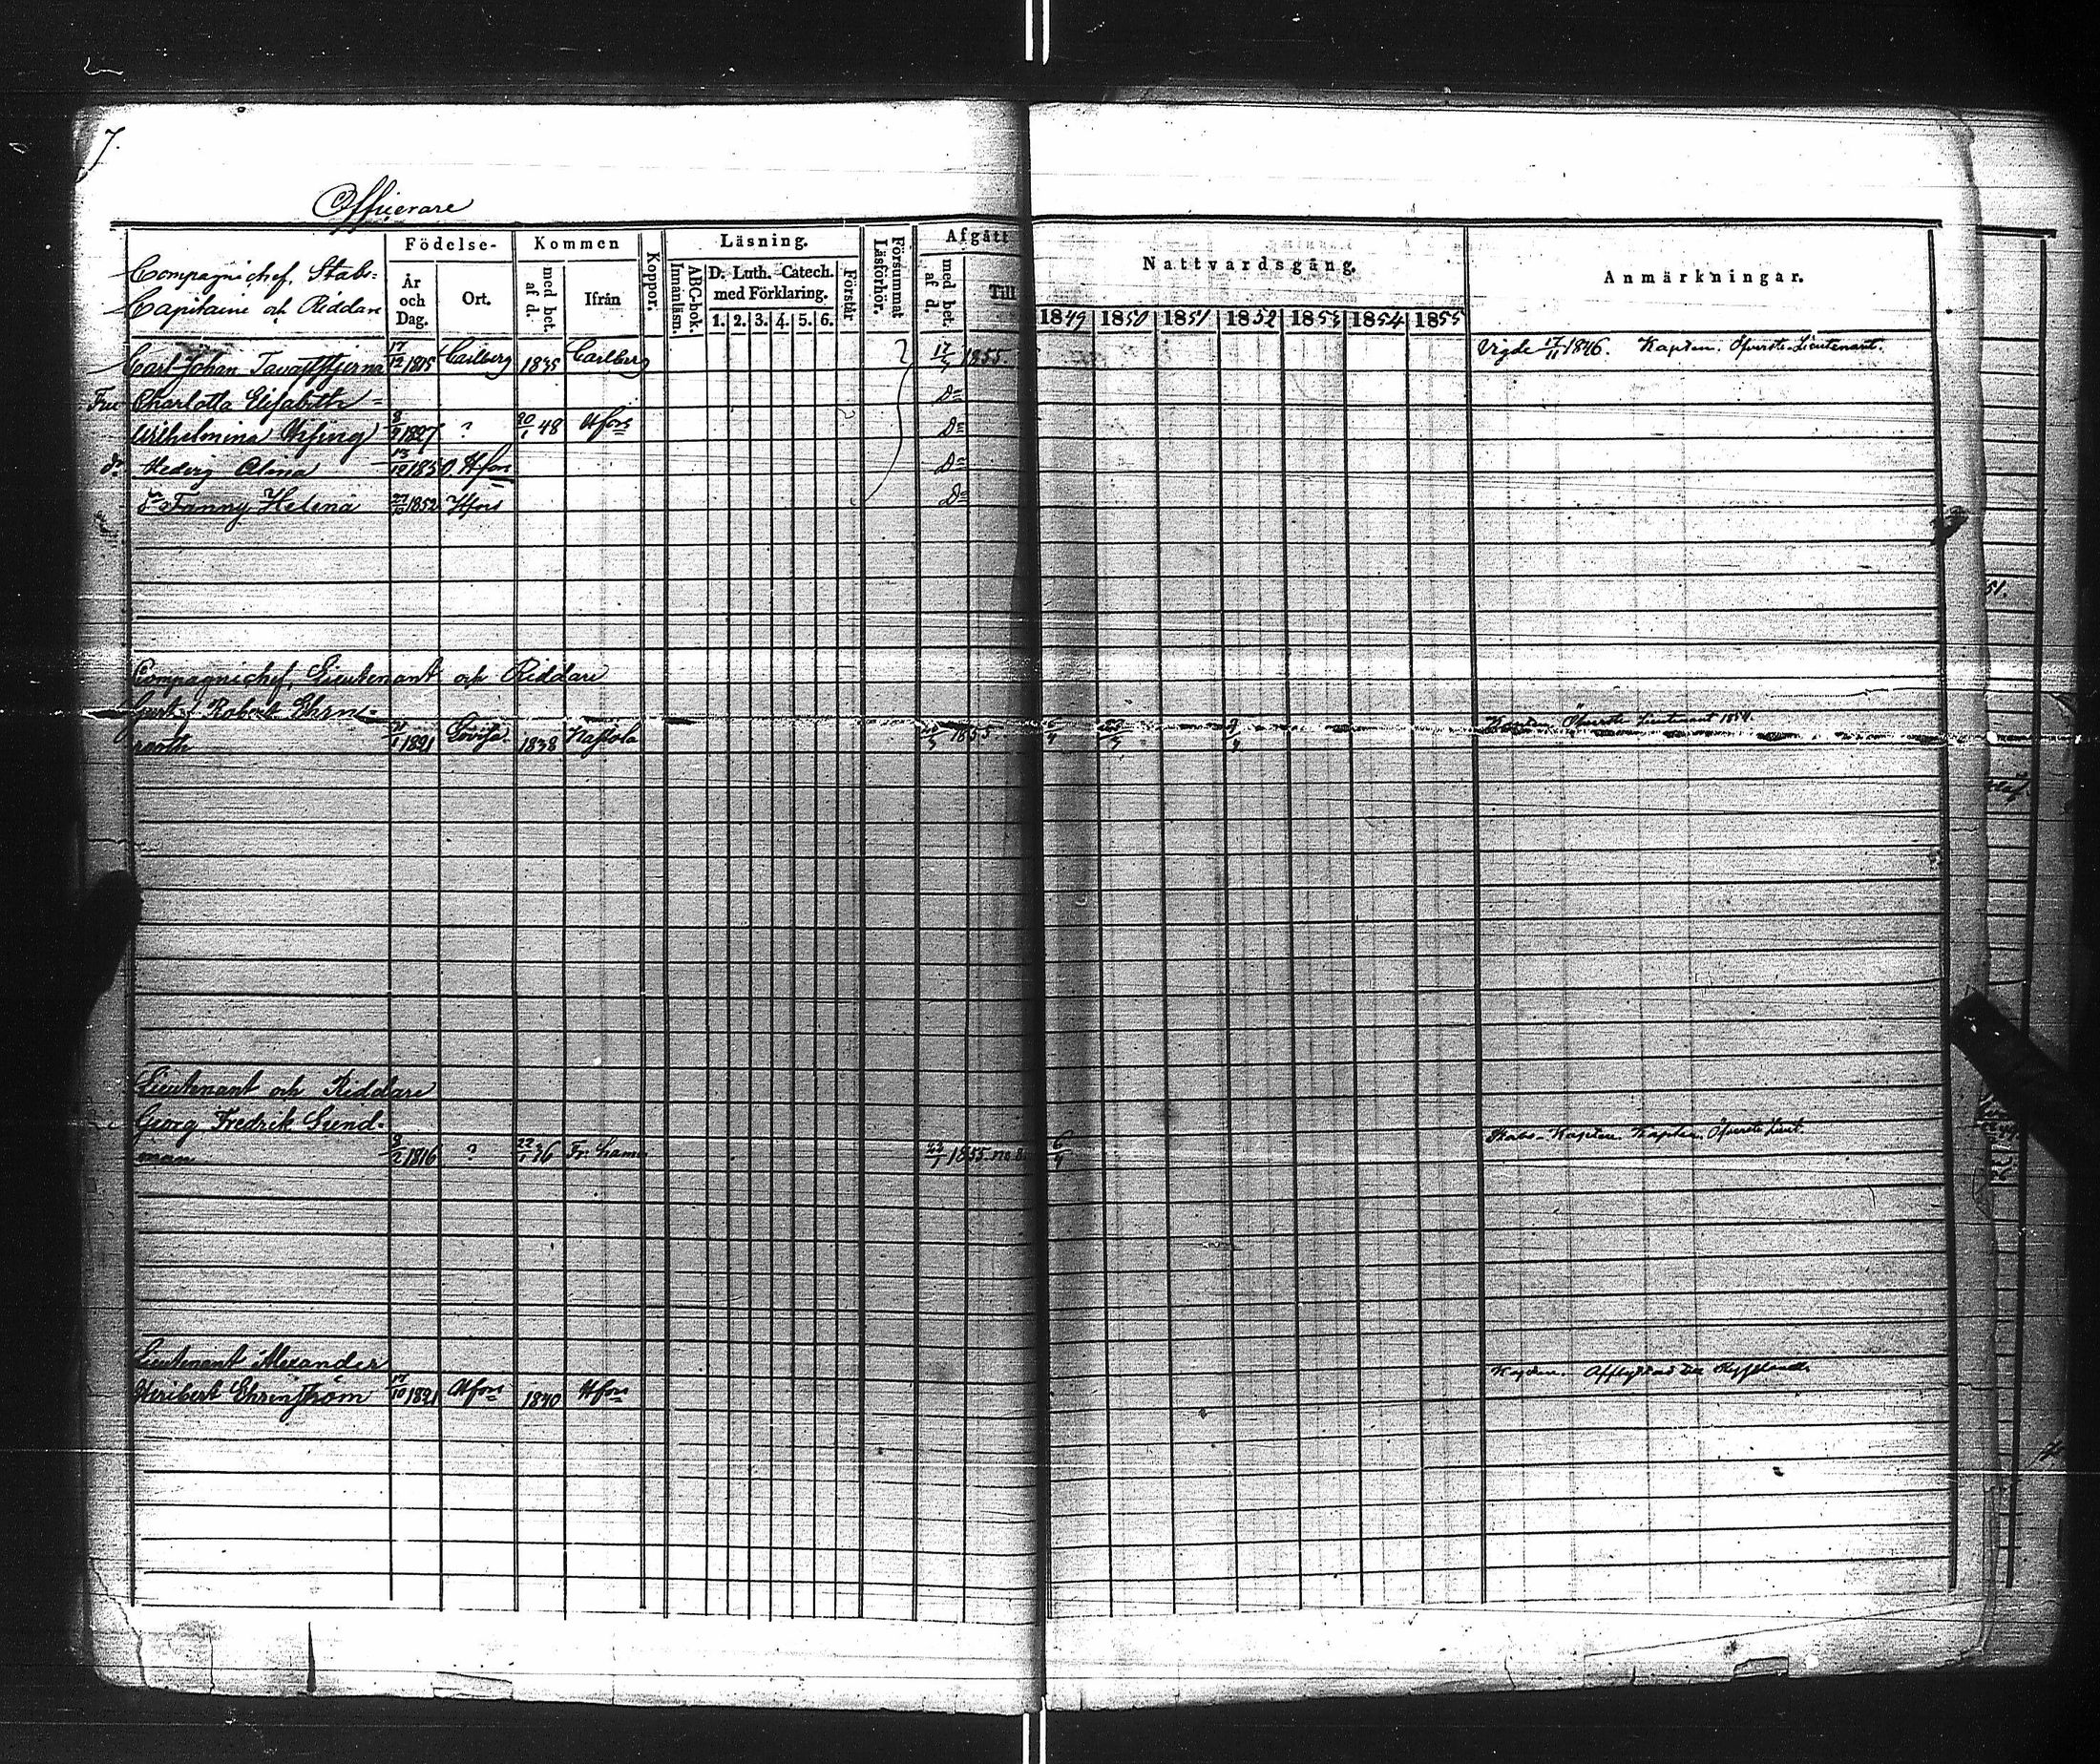 7.
Officerare
Compagnichef, Stabs-
Capitaine och Riddare
Födelse-
År och Dag.
Ort.
Kommen
med bet. af d.
Ifrån
Koppor.
Läsning.
Innanläsn.
ABC-bok.
D. Luth. Catech. med Förklaring.
1. 2. 3. 4. 5. 6.
Förstår
Försummat Läsförhör.
Afgått
med bet. af d.
Till
Nattvardsgång.
1849 1850 1851 1852 1853 1854 1855
Anmärkningar.
Carl Johan Tavaststjerna 17/12 1815 Carlberg 1835 Carlberg 17/ 1855 Vigde 17/11 1846. Kapten. Öfverste-Lieutenant.
Fru Charlotta Elisabeth = Do
Wilhelmina 1827 ? 20/1 48 Hfors Do
dr Hedvig Alina 13/10 1850. Hfors Do
dr Fanny Helena 1852 Hfors Do
Compagnichef, Lieutenant och Riddare
Gust. Robert Ehrn-
rooth 1821 Lovisa 1838 Nastola 1855 Kapten Öfverste Lieutenant 1854.
Lieutenant och Riddare
Georg Fredrik Sund-
man 1816 ? 22/1 36 Fr. 1855 6/4 Stabs-Kapten. Kapten. Öfverste Lieut.
Lieutenant Alexander
Heribert Ehrenström 17/10 1821 Hfors 1840 Hfors Kapten. Afflyttad till Ryssland.
51.